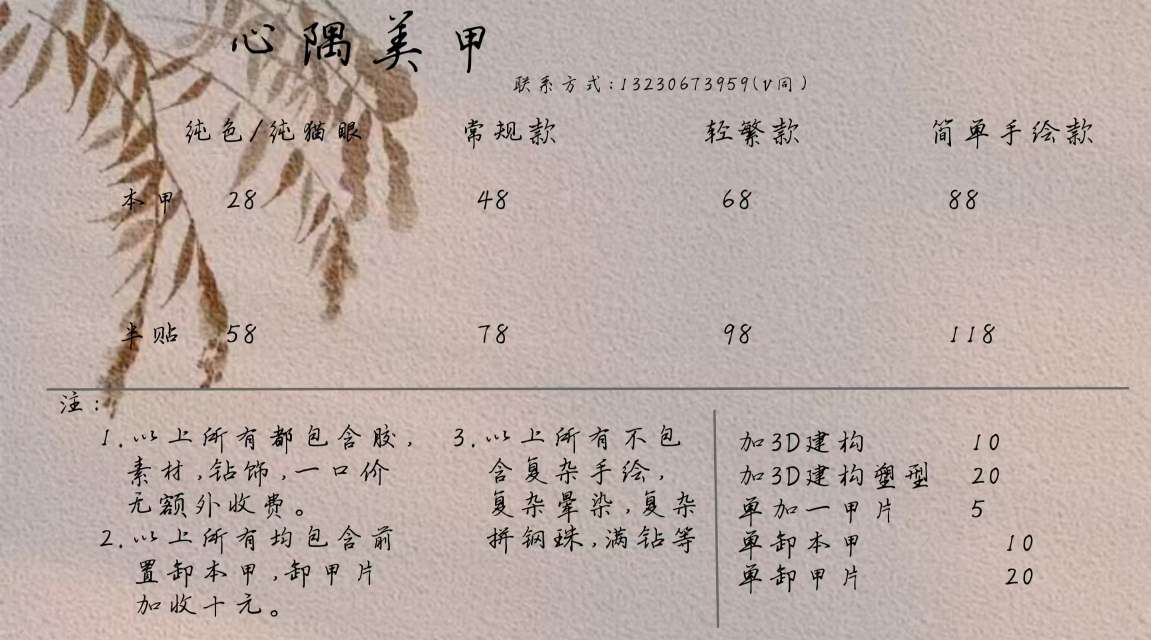 心隅美甲
联系方式:13230673959(v同)
纯色/纯猫眼 常规款 轻繁款 简单手绘款
本甲 28 48 68 88
半贴 58 78 98 118
注:
1.以上所有都包含胶,
素材,钻饰,一口价
无额外收费。
2.以上所有均包含前
置卸本甲,卸甲片
加收十元。
3.以上所有不包
含复杂手绘,
复杂晕染,复杂
拼钢珠,满钻等
加3D建构 10
加3D建构塑型 20
单加一甲片 5
单卸本甲 10
单卸甲片 20